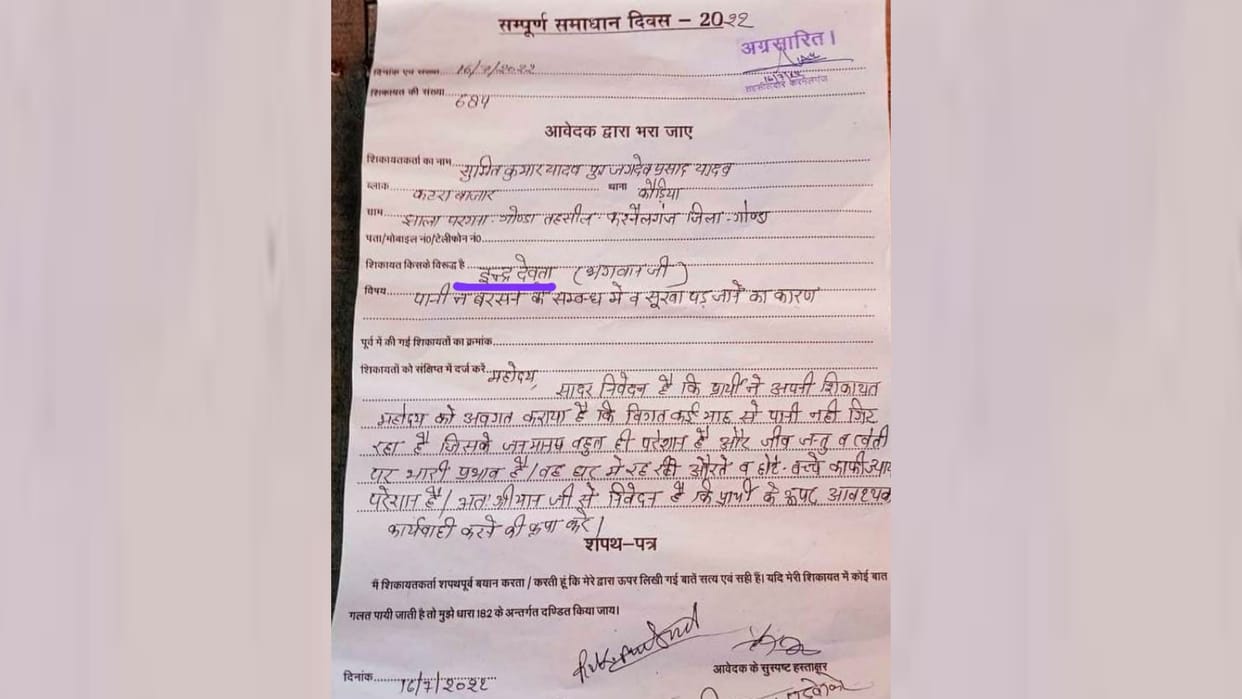 सम्पूर्ण समाधान दिवस – 20२२
अग्रसारित।
16/7/22
तहसीलदार करनैलगंज
दिनांक एवं समय 16/7/2022
शिकायत की संख्या
684
आवेदक द्वारा भरा जाए
शिकायतकर्ता का नाम सुमित कुमार यादव पुत्र जगदेव प्रसाद यादव
ब्लाक कटरा बाजार थाना कौड़िया
ग्राम झाला परगना- गोण्डा तहसील- करनैलगंज जिला- गोण्डा
पता/मोबाइल नं0/टेलीफोन नं0
शिकायत किसके विरूद्ध है इन्द्र देवता (भगवान जी)
विषय पानी न बरसने के सम्बन्ध मे व सूखा पड़ जाने का कारण
पूर्व में की गई शिकायतों का क्रमांक
शिकायतों को संक्षिप्त में दर्ज करें महोदय,
सादर निवेदन है कि प्रार्थी ने अपनी शिकायत
महोदय को अवगत कराया है कि विगत कई माह से पानी नही गिर
रहा है जिसके जनमानस बहुत ही परेशान है और जीव जन्तु व खेती
पर भारी प्रभाव है। वह घर मे रह रही औरते व छोटे- बच्चे काफी
परेशान है। अतः श्रीमान जी से निवेदन है कि प्रार्थी के ऊपर आवश्यक
कार्यवाही करने की कृपा करे।
शपथ–पत्र
मैं शिकायतकर्ता शपथपूर्व बयान करता / करती हूं कि मेरे द्वारा ऊपर लिखी गई बातें सत्य एवं सही हैं। यदि मेरी शिकायत में कोई बात
गलत पायी जाती है तो मुझे धारा 182 के अन्तर्गत दण्डित किया जाय।
आवेदक के सुस्पष्ट हस्ताक्षर
दिनांक 16/7/2022